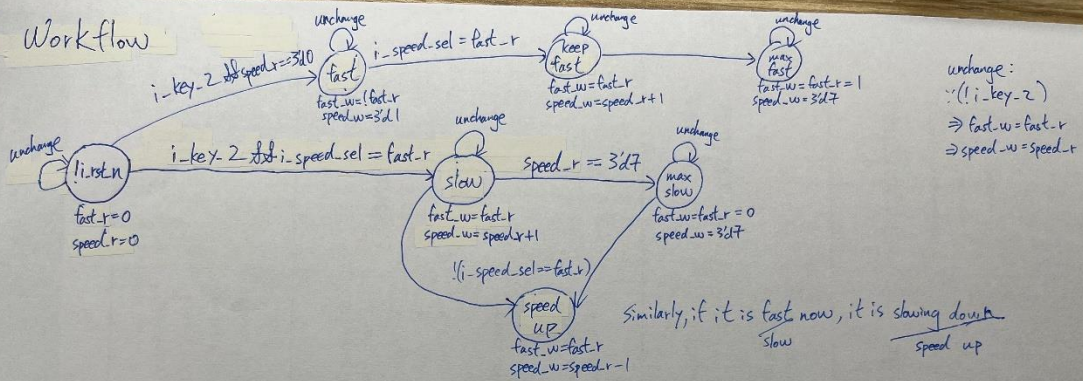 Workflow
unchange
!i_rst_n
fast_r=0
speed_r=0
i_key_2 && speed_r==3'd0
unchange
fast
fast_w=!fast_r
speed_w=3'd1
i_speed_sel=fast_r
unchange
keep
fast
fast_w=fast_r
speed_w=speed_r+1
unchange
max
fast
fast_w=fast_r=1
speed_w=3'd7
unchange:
∵(!i_key_2)
⇒ fast_w=fast_r
⇒ speed_w=speed_r
i_key_2 && i_speed_sel == fast_r
unchange
slow
fast_w=fast_r
speed_w=speed_r+1
speed_r == 3'd7
unchange
max
slow
fast_w=fast_r=0
speed_w=3'd7
!(i_speed_sel==fast_r)
speed
up
fast_w=fast_r
speed_w=speed_r-1
Similarly, if it is fast now, it is slowing down
slow
speed up